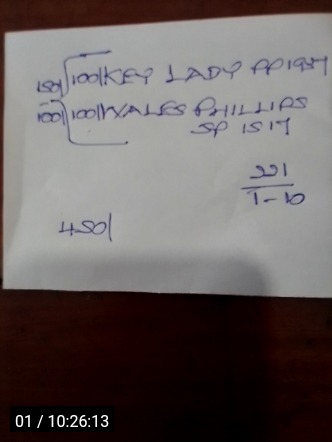 150/ 100/ KEY LADY PP 1957
100/ 100/ WALES PHILLIPS
SP 1517
221
1-10
450/
01 / 10:26:13